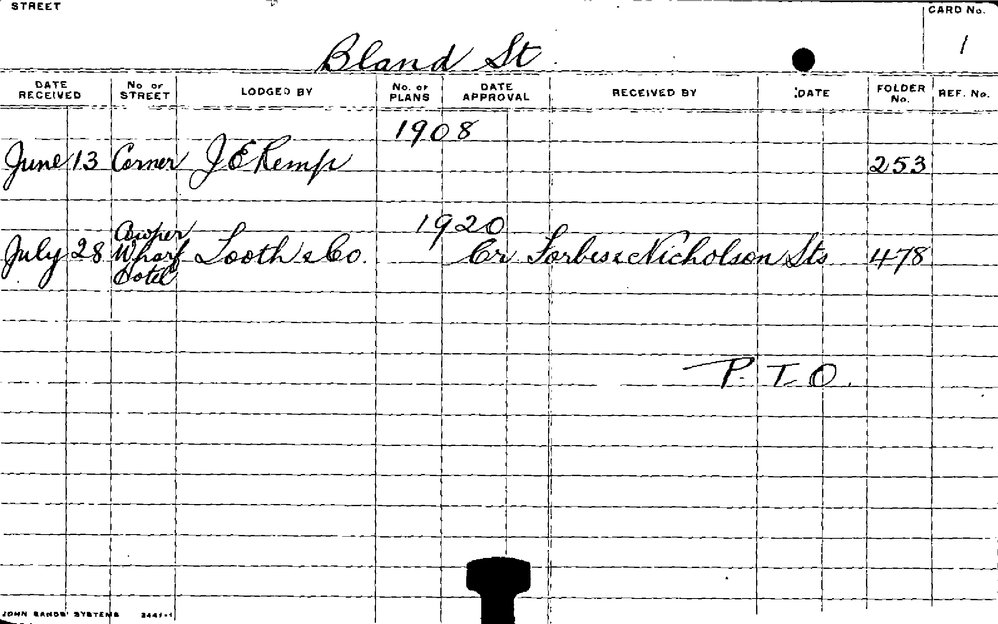 STREET
CARD No.
Bland St
1
DATE RECEIVED No or STREET LODGED BY No. of PLANS DATE APPROVAL RECEIVED BY DATE FOLDER No. REF. No.
1908
June 13 Corner J E Kemp 253
1920
Cowper
July 28 Wharf Tooth & Co. Cr Forbes & Nicholson Sts 478
Hotel
P.T.O.
JOHN SANDS' SYSTEMS 3441-1